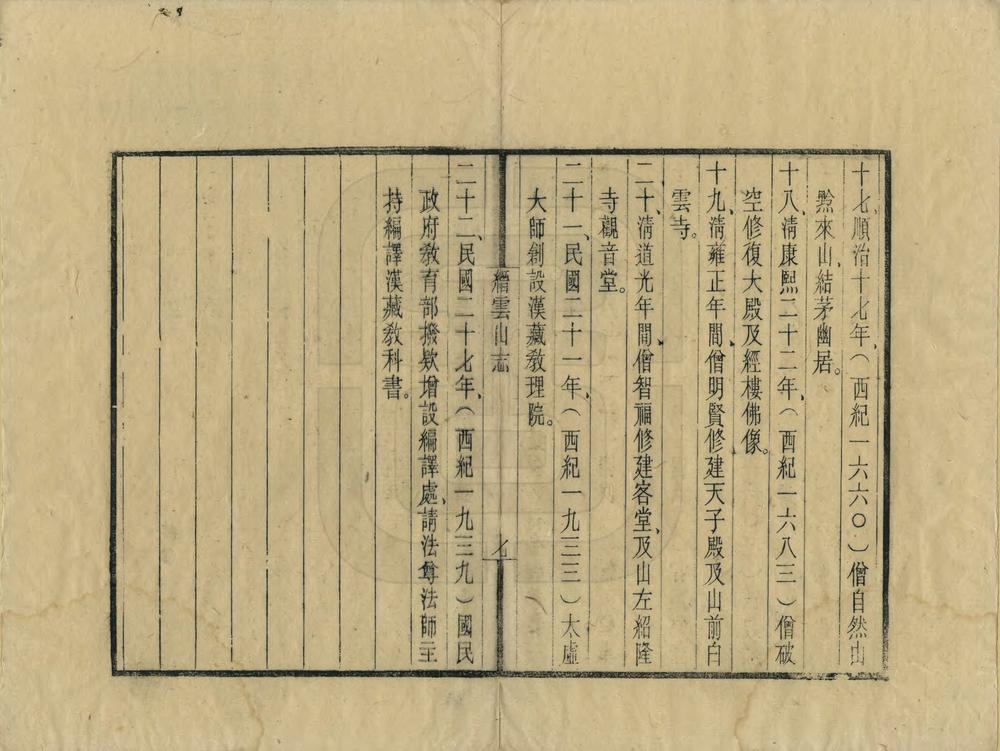 十七、順治十七年、（西紀一六六〇）僧自然由
黔來山、結茅幽居。
十八、清康熙二十二年、（西紀一六八三）僧破
空修復大殿及經樓佛像。
十九、清雍正年間、僧明賢修建天子殿及山前白
雲寺。
二十、清道光年間、僧智福修建客堂、及山左紹隆
寺觀音堂。
二十一、民國二十一年、（西紀一九三三）太虛
大師創設漢藏教理院。
縉雲山志
七
二十二、民國二十七年、（西紀一九三九）國民
政府教育部撥欵增設編譯處、請法尊法師主
持編譯漢藏教科書。